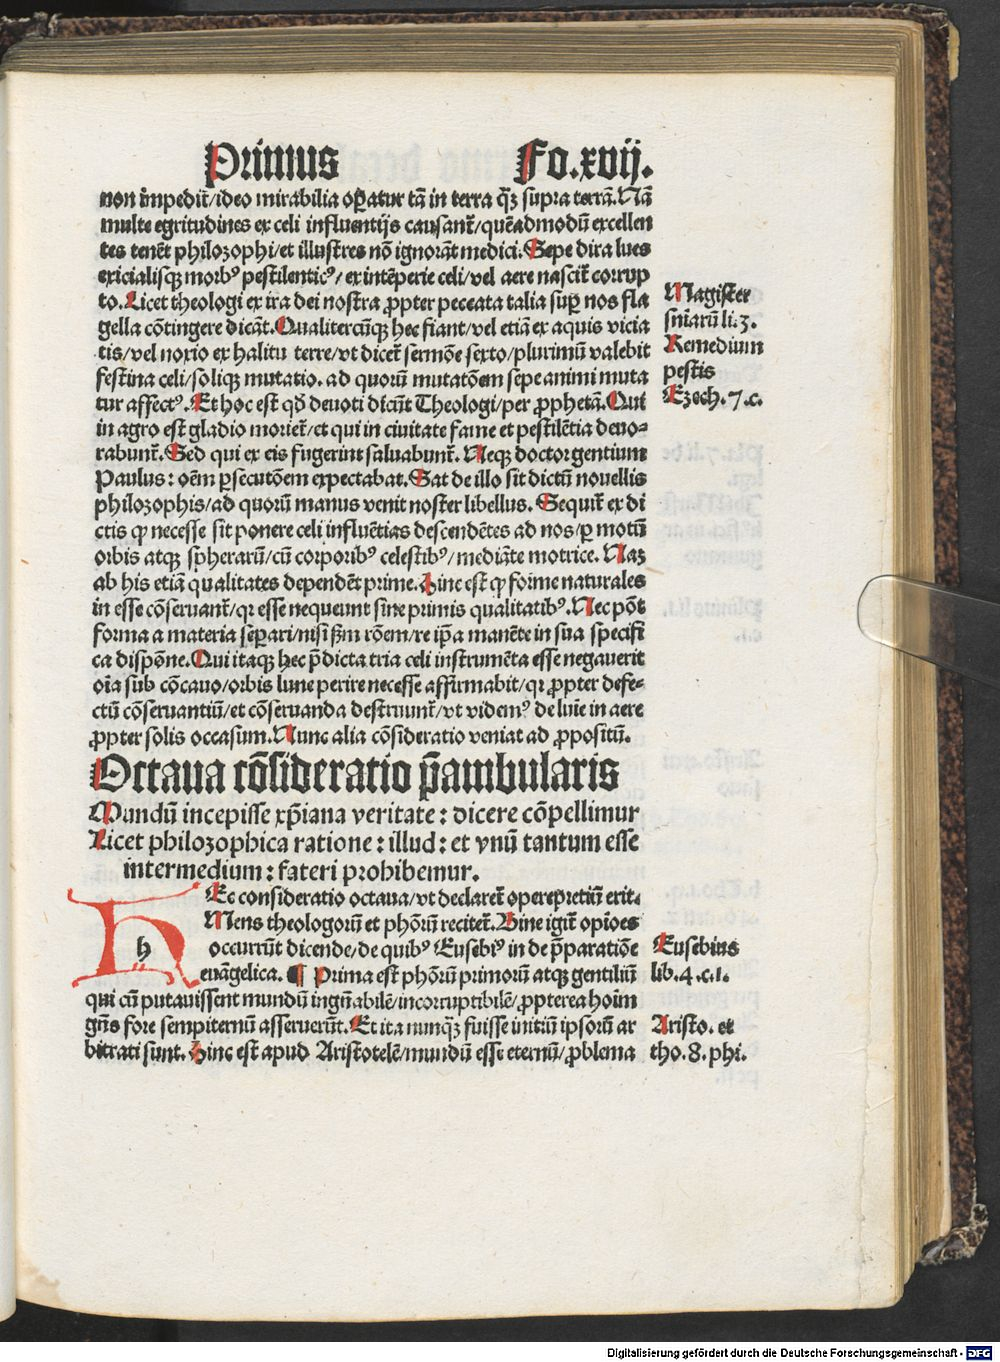 Primus Fo.xvij.
non impedit̃/ideo mirabilia op̃atur tã in terra q̃ꝫ supra terrã. Nã
multe egritudines ex celi influentijs causant̃/quẽadmodũ excellen
tes tenẽt philozophi/et illustres nõ ignorãt medici. Sepe dira lues
exicialisqꝫ morbꝰ pestilenticꝰ/ ex intẽperie celi/vel aere nascit̃ corrup
to. Licet theologi ex ira dei nostra ꝓpter peccata talia sup̃ nos fla
gella cõtingere dicãt. Qualitercũqꝫ hec fiant/vel etiã ex aquis vicia
tis/vel noxio ex halitu terre/vt dicet̃ sermõe sexto/plurimũ valebit
festina celi/soliqꝫ mutatio. ad quorũ mutatõem sepe animi muta
tur affectꝰ. Et hoc est qđ deuoti dicũt Theologi/per ꝓphetã. Qui
in agro est gladio moriet̃/et qui in ciuitate fame et pestilẽtia deuo-
rabunt̃. Sed qui ex eis fugerint saluabunt̃. Neqꝫ doctor gentium
Paulus: oẽm ꝑsecutõem expectabat. Sat de illo sit dictũ nouellis
philozophis/ad quorũ manus venit noster libellus. Sequit̃ ex di
ctis ꝙ necesse sit ponere celi influẽtias descendẽtes ad nos/ꝑ motũ
orbis atqꝫ spherarũ/cũ corporibꝰ celestibꝰ/mediãte motrice. Naꝫ
ab his etiã qualitates dependẽt prime. Hinc est ꝙ forme naturales
in esse cõseruant̃/qꝛ esse nequeunt sine primis qualitatibꝰ. Nec põt
forma a materia sep̃ari/nisi ẜm rõem/re ip̃a manẽte in sua specifi
ca dispõne. Qui itaqꝫ hec p̃dicta tria celi instrumẽta esse negauerit
oĩa sub cõcauo/orbis lune perire necesse affirmabit/qꝛ ꝓpter defe-
ctũ cõseruantiũ/et cõseruanda destruunt̃/vt videmꝰ de luie in aere
ꝓpter solis occasum. Nunc alia cõsideratio veniat ad ꝓpositũ.
Magister
sn̄iarũ li. 3.
Remedium
pestis
Ezech. 7. c.
Octaua cõsideratio p̃ambularis
Mundũ incepisse xp̃iana veritate: dicere cõpellimur
Licet philozophica ratione: illud: et vnũ tantum esse
intermedium: fateri prohibemur.
h Ec consideratio octaua/vt declaret̃ operepretiũ erit.
Mens theologorũ et ph̃orũ recitet̃. Hine igit̃ opĩoes
occurrũt dicende/de quibꝰ Eusebiꝰ in de p̃paratiõe
euãgelica. ¶ Prima est ph̃orũ primorũ atqꝫ gentiliũ
qui cũ putauissent mundũ ingñabilẽ/incorruptibilẽ/ꝓpterea hoĩm
gñs fore sempiternũ asseruerũt. Et ita nunq̃ꝫ fuisse initiũ ipsorũ ar
bitrati sunt. Hinc est apud Aristotelẽ/mundũ esse eternũ/ꝓblema
Eusebius
lib. 4. c. 1.
Aristo. et
tho. 8. phi.
Digitalisierung gefördert durch die Deutsche Forschungsgemeinschaft - DFG